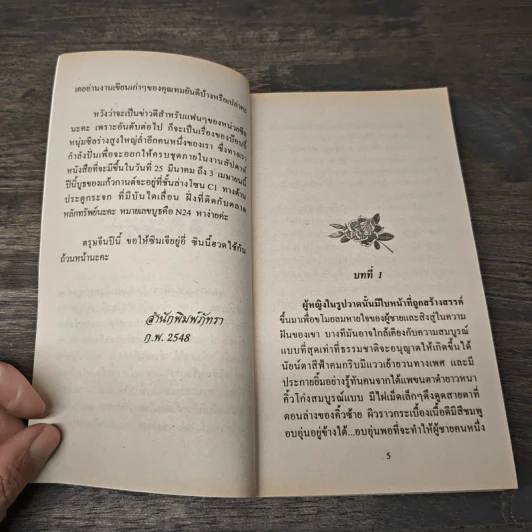 เคยอ่านงานเขียนเก่าๆของคุณทมอันดีบ้างหรือเปล่าคะ
หวังว่าจะเป็นข่าวดีสำหรับแฟนๆของหน่วยซีล
นะคะ เพราะอันดับต่อไป ก็จะเป็นเรื่องของน้องบีบี
หนุ่มซีลร่างสูงใหญ่ล่ำอีกคนหนึ่งของเรา ซึ่งทางเรา
กำลังปั่นเพื่อจะออกให้ครบชุดภายในงานสัปดาห์
หนังสือที่จะมีขึ้นในวันที่ 25 มีนาคม ถึง 3 เมษายนนี้
ปีนี้บูธของแก้วกานต์จะอยู่ที่ชั้นล่างโซน C1 ทางด้าน
ประตูกระจก ที่มีบันไดเลื่อน ฝั่งที่ติดกับตลาด
หลักทรัพย์นะคะ หมายเลขบูธคือ N24 หาง่ายค่ะ
ตรุษจีนปีนี้ ขอให้ซินเจียยู่อี่ ซินนี้ฮวดใช้กัน
ถ้วนหน้านะคะ
สำนักพิมพ์ภัทรา
ก.พ. 2548
บทที่ 1
ผู้หญิงในรูปวาดนั้นมีใบหน้าที่ถูกสร้างสรรค์
ขึ้นมาเพื่อขโมยลมหายใจของผู้ชายและสิงสู่ในความ
ฝันของเขา บางทีมันอาจใกล้เคียงกับความสมบูรณ์
แบบที่สุดเท่าที่ธรรมชาติจะอนุญาตให้เกิดขึ้นได้
นัยน์ตาสีฟ้าคมกริบมีแววเย้ายวนทางเพศ และมี
ประกายยิ้มอย่างรู้ทันคนจากใต้แพขนตาดำยาวหนา
คิ้วโก่งสมบูรณ์แบบ มีไฝเม็ดเล็กๆดึงดูดสายตาที่
ตอนล่างของคิ้วซ้าย ผิวราวกระเบื้องเนื้อดีมีสีชมพู
อบอุ่นอยู่ข้างใต้...อบอุ่นพอที่จะทำให้ผู้ชายคนหนึ่ง
5